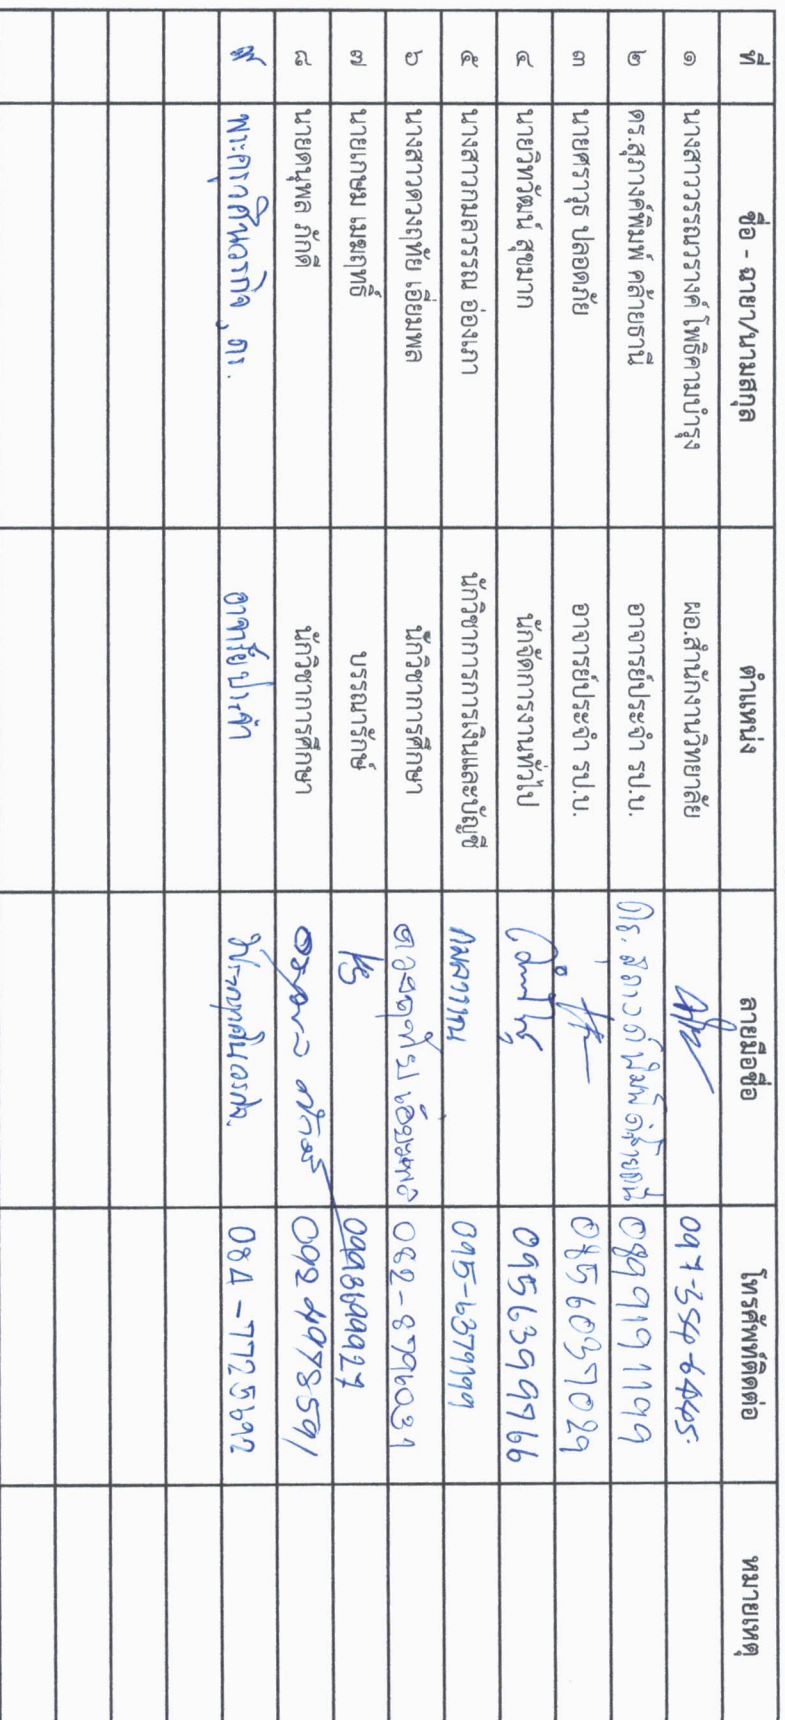 ที่ ชื่อ - ฉายา/นามสกุล ตำแหน่ง ลายมือชื่อ โทรศัพท์ติดต่อ หมายเหตุ
๑ นางสาววรรณวรางค์ โพธิคามบำรุง ผอ.สำนักงานวิทยาลัย
๒ ดร.สุภางค์พิมพ์ คล้ายธานี อาจารย์ประจำ รป.บ. 0899191199
๓ นายศราวุธ ปลอดภัย อาจารย์ประจำ รป.บ. 0856037029
๔ นายวิทวัฒน์ สุขมาก นักจัดการงานทั่วไป 0956399766
๕ นางสาวกมลวรรณ อ่องเภา นักวิชาการการเงินและบัญชี กมลวรรณ 095-6379199
๖ นางสาวดวงฤทัย เอี่ยมพล นักวิชาการศึกษา ดวงฤทัย เอี่ยมพล 082-8796039
๗ นายเกษม เมฆฤทธิ์ บรรณารักษ์
๘ นายดนุพล ภักดี นักวิชาการศึกษา 0924978591
๙ ,ดร. อาจารย์ประจำ 084-7725692